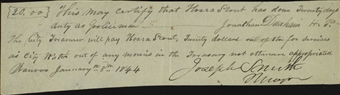 [20.00] This may certify that Hosea Stout has done Twenty days
duty as policeman Jonathan Dunham H. P.
The City Treasurer will pay Hosea Stout, Twenty dollars out of the for services
as City Watch out of any monies in the Treasury not otherwise appropriated
Nauvoo January 1844
Joseph Smith
Mayor